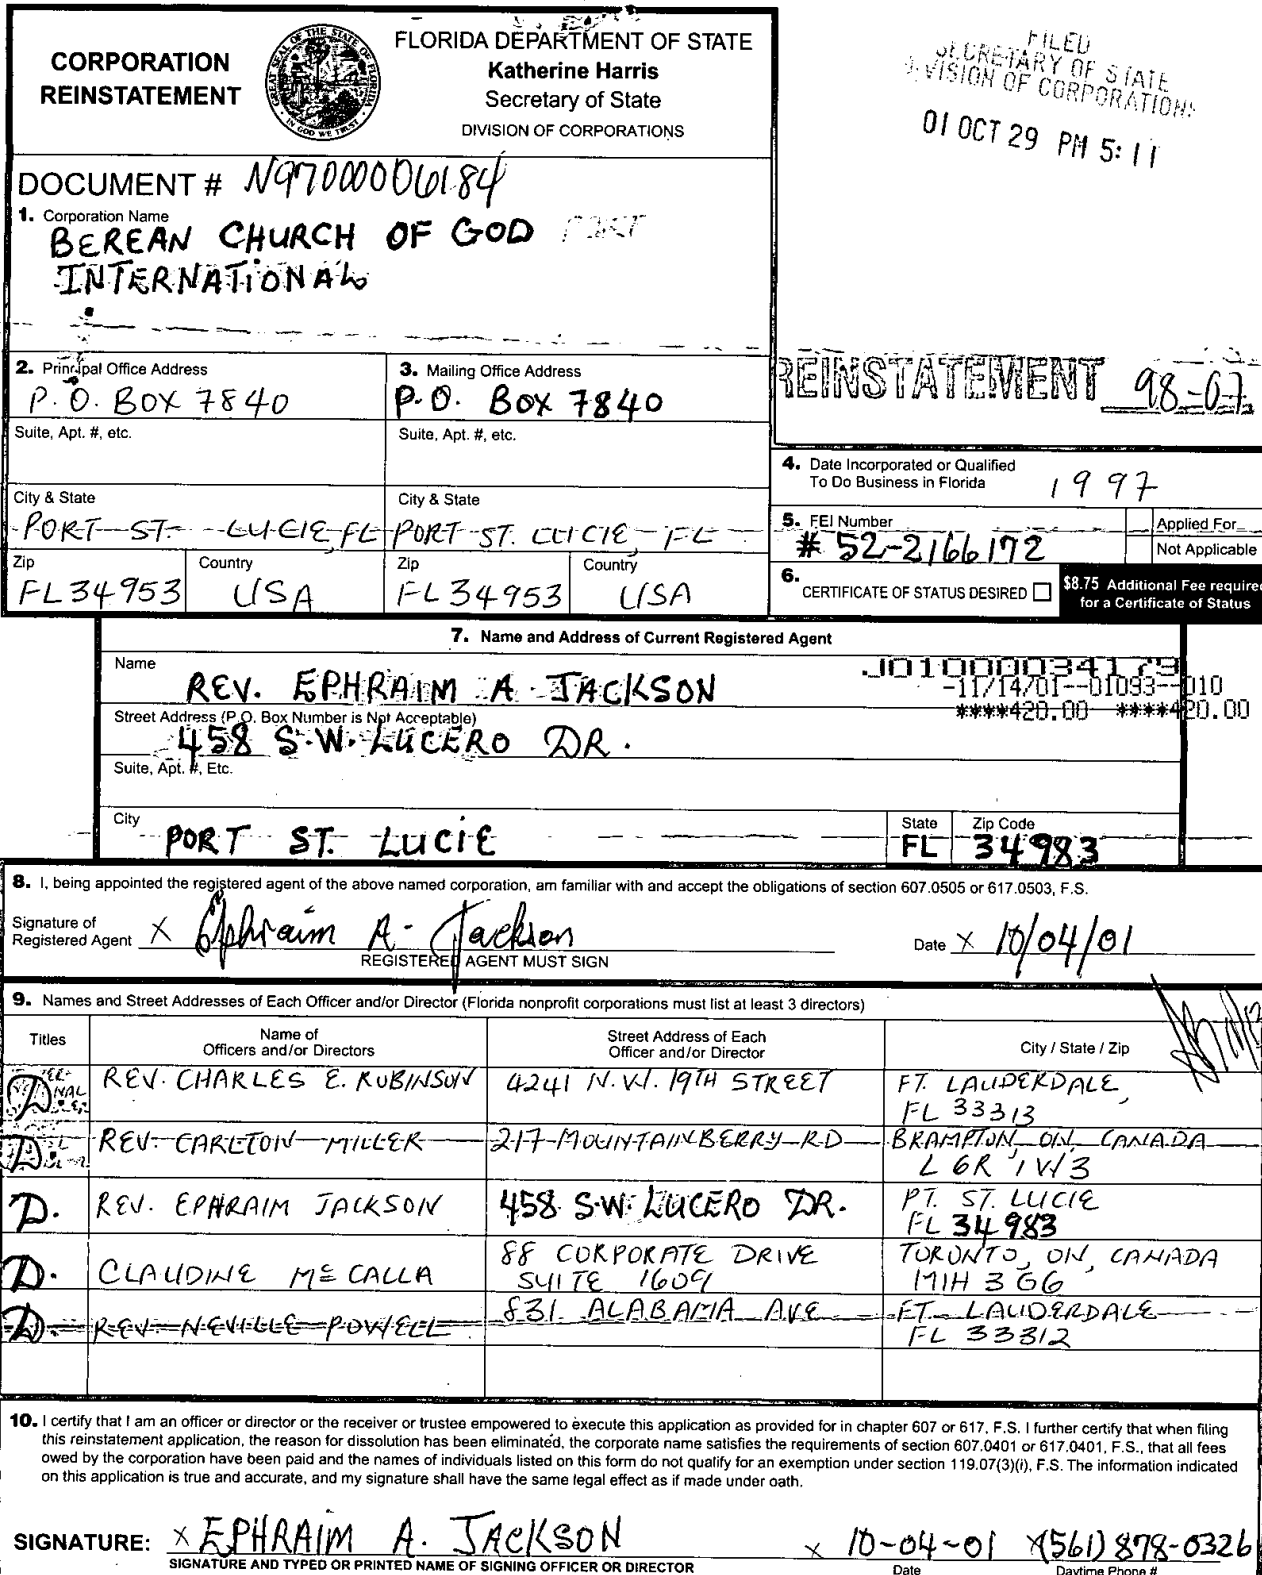 CORPORATION
REINSTATEMENT
GREAT SEAL OF THE STATE OF FLORIDA
IN GOD WE TRUST
FLORIDA DEPARTMENT OF STATE
Katherine Harris
Secretary of State
DIVISION OF CORPORATIONS
FILED
SECRETARY OF STATE
DIVISION OF CORPORATIONS
01 OCT 29 PM 5:11
DOCUMENT # N97000006184
1. Corporation Name
BEREAN CHURCH OF GOD
INTERNATIONAL
2. Principal Office Address
P.O. BOX 7840
3. Mailing Office Address
P.O. BOX 7840
REINSTATEMENT 98-01
Suite, Apt. #, etc.
Suite, Apt. #, etc.
4. Date Incorporated or Qualified
To Do Business in Florida
1997
City & State
PORT ST. LUCIE, FL
City & State
PORT ST. LUCIE, FL
5. FEI Number
# 52-2166172
Applied For
Not Applicable
Zip
FL 34953
Country
USA
Zip
FL 34953
Country
USA
6. CERTIFICATE OF STATUS DESIRED
$8.75 Additional Fee required
for a Certificate of Status
7. Name and Address of Current Registered Agent
Name
REV. EPHRAIM A JACKSON
J01000034179
-11/14/01--01093--010
****420.00 ****420.00
Street Address (P.O. Box Number is Not Acceptable)
458 S.W. LUCERO DR.
Suite, Apt. #, Etc.
City
PORT ST. LUCIE
State
FL
Zip Code
34983
8. I, being appointed the registered agent of the above named corporation, am familiar with and accept the obligations of section 607.0505 or 617.0503, F.S.
Signature of
Registered Agent X Ephraim A. Jackson
REGISTERED AGENT MUST SIGN
Date X 10/04/01
9. Names and Street Addresses of Each Officer and/or Director (Florida nonprofit corporations must list at least 3 directors)
Titles
Name of
Officers and/or Directors
Street Address of Each
Officer and/or Director
City / State / Zip
D REV. CHARLES E. RUBINSON 4241 N.W. 19TH STREET FT. LAUDERDALE,
FL 33313
D. REV. CARLTON MILLER 217 MOUNTAINBERRY RD BRAMPTON, ON, CANADA
L6R 1W3
D. REV. EPHRAIM JACKSON 458 S.W. LUCERO DR. PT. ST. LUCIE
FL 34983
D. CLAUDINE McCALLA 88 CORPORATE DRIVE
SUITE 1609
TORONTO, ON, CANADA
M1H 3G6
D. REV. NEVILLE POWELL 831 ALABAMA AVE FT. LAUDERDALE
FL 33312
10. I certify that I am an officer or director or the receiver or trustee empowered to execute this application as provided for in chapter 607 or 617, F.S. I further certify that when filing
this reinstatement application, the reason for dissolution has been eliminated, the corporate name satisfies the requirements of section 607.0401 or 617.0401, F.S., that all fees
owed by the corporation have been paid and the names of individuals listed on this form do not qualify for an exemption under section 119.07(3)(i), F.S. The information indicated
on this application is true and accurate, and my signature shall have the same legal effect as if made under oath.
SIGNATURE: X EPHRAIM A. JACKSON X 10-04-01 X(561) 878-0326
SIGNATURE AND TYPED OR PRINTED NAME OF SIGNING OFFICER OR DIRECTOR
Date
Daytime Phone #